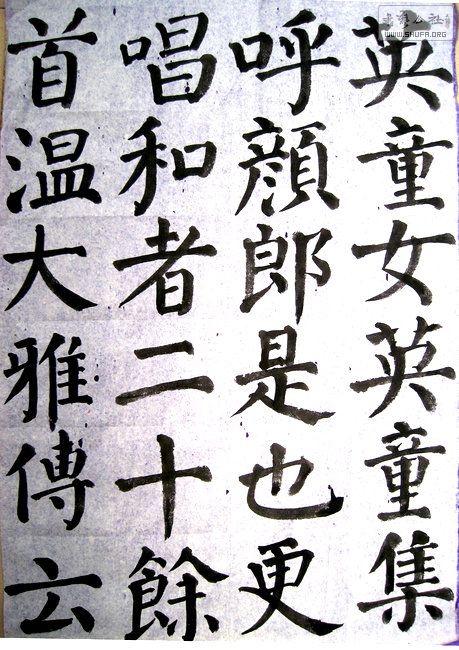 英童女英童集
呼顔郎是也更
唱和者二十餘
首温大雅傳云
WWW.SHUFA.ORG